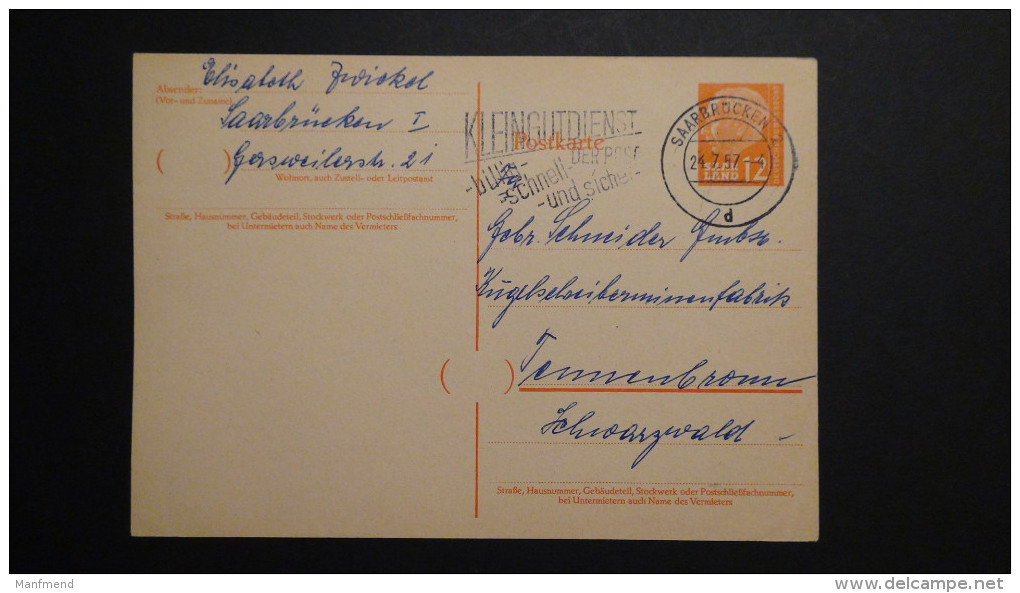 Absender: Elisabeth Zwickel
(Vor- und Zuname)
Saarbrücken I
Gersweilerstr. 21
Wohnort, auch Zustell- oder Leitpostamt
Straße, Hausnummer, Gebäudeteil, Stockwerk oder Postschließfachnummer,
bei Untermietern auch Name des Vermieters
KLEINGUTDIENST
DER POST
-billig-
-schnell-
-und sicher-
Postkarte
SAARBRÜCKEN
24.7.57
d
LAND 12
Gebr. Schneider Gmbh.
Kugelschreiberminenfabrik
Tennenbronn
Schwarzwald -
Straße, Hausnummer, Gebäudeteil, Stockwerk oder Postschließfachnummer,
bei Untermietern auch Name des Vermieters
Manfmend
www.delcampe.net